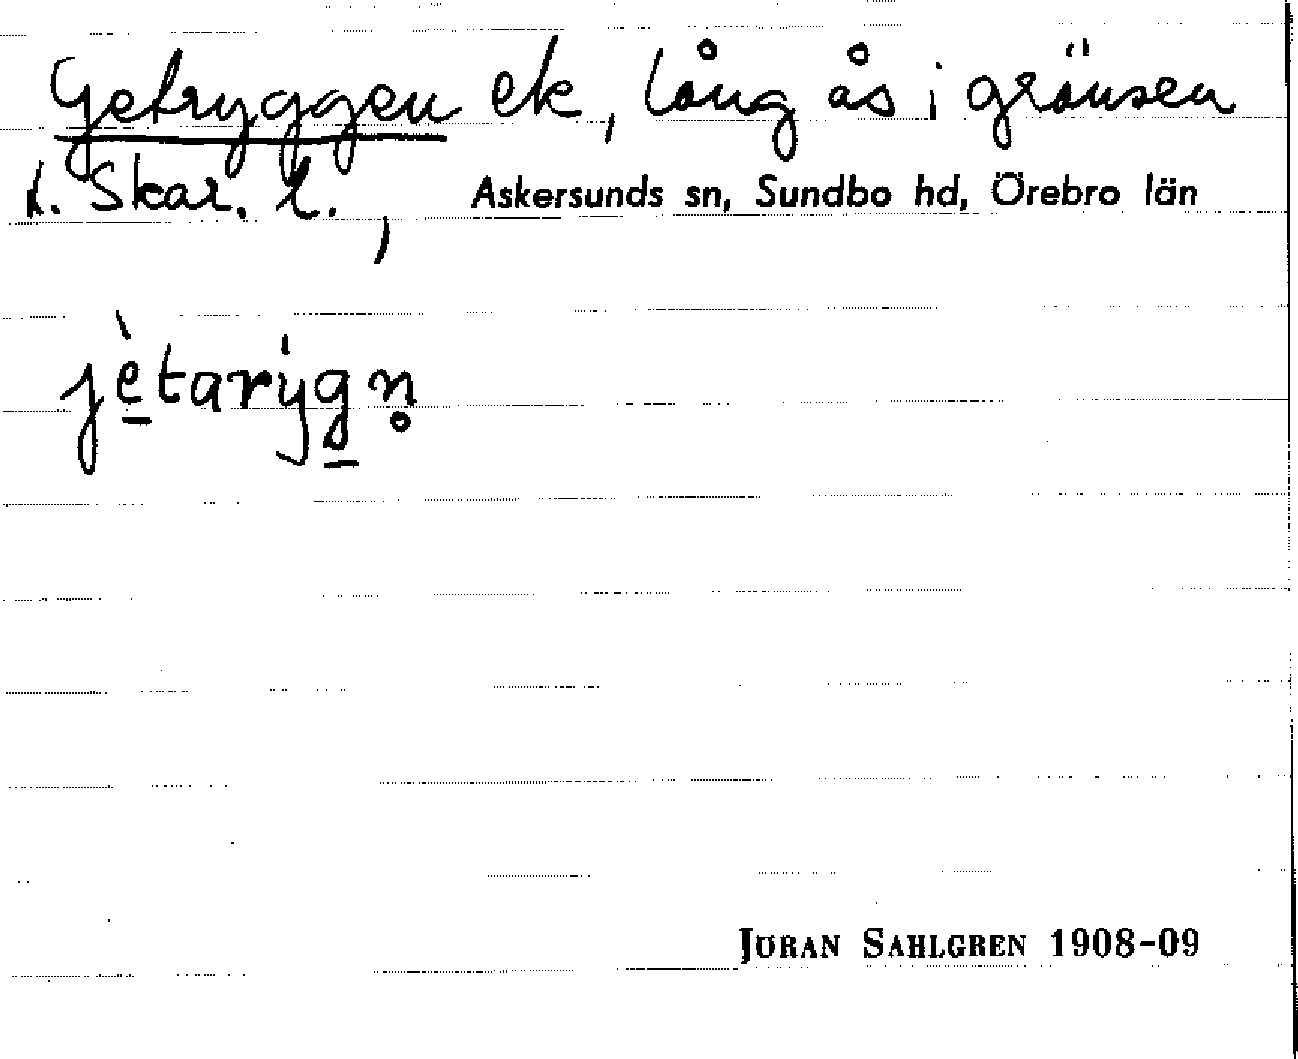 Getryggen ek, lång ås i gränsen
t. Skar. l., Askersunds sn, Sundbo hd, Örebro län
jètarýgn̥
JÖRAN SAHLGREN 1908-09